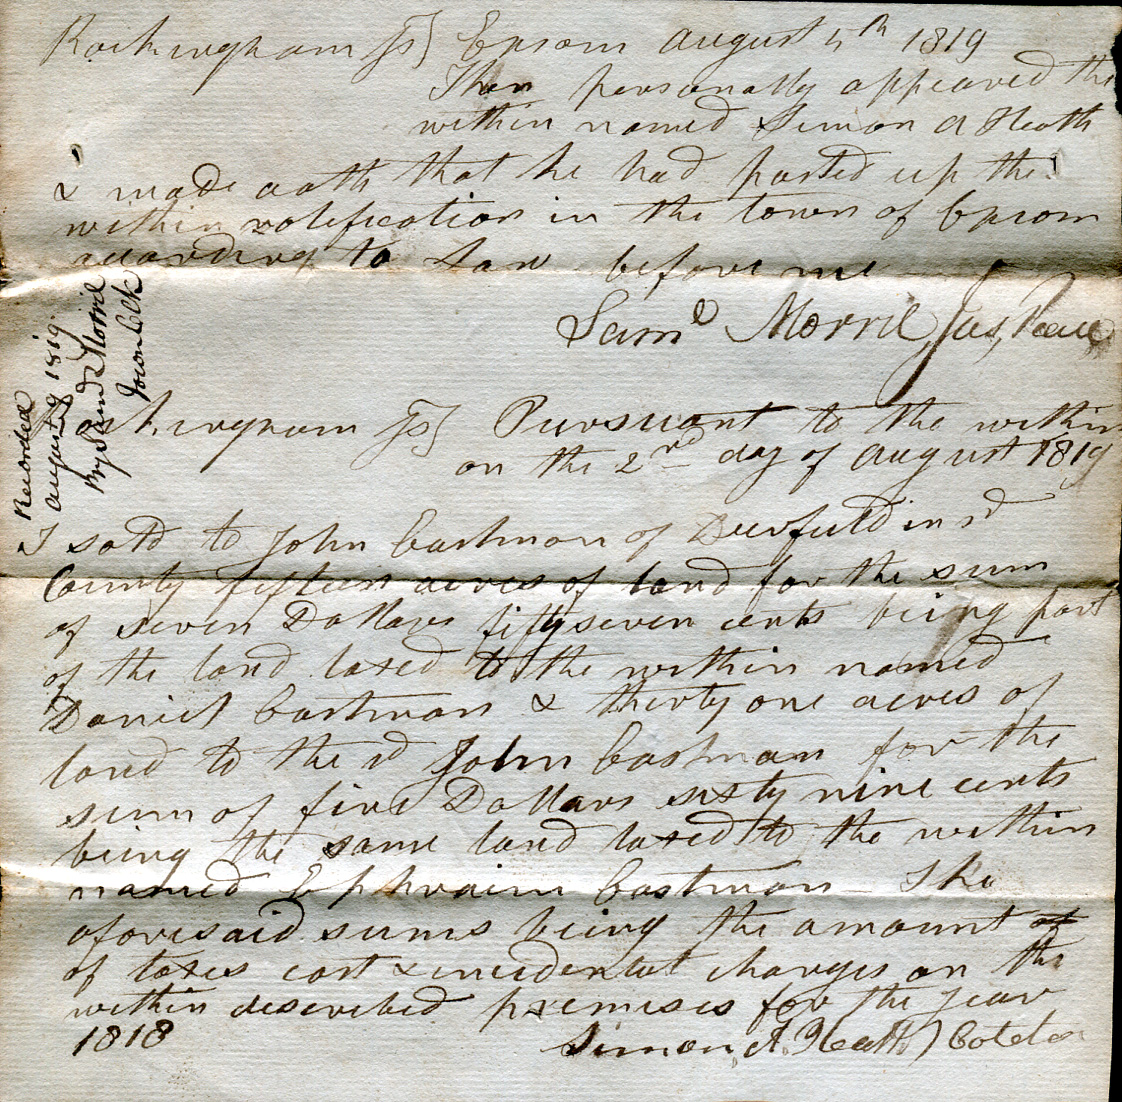 Rockingham Ss} Epsom August 5th 1819
Then personally appeared the
within named Simon A Heath
& made oath that he had posted up the
within notification in the town of Epsom
according to Law before me
Saml Morril, Jus, Peace
Recorded
August 9 1819
By Saml Morril
Town Clk
Rockingham Ss} Pursuant to the within
on the 2nd day of August 1819
I sold to John Eastman of Deerfield in sd
County fifteen acres of land for the sum
of seven Dollars fifty seven cents being part
of the land taxed to the within named
Daniel Eastman & thirty one acres of
land to the sd John Eastman for the
sum of five Dollars sixty nine cents
being the same land taxed to the within
named Ephraim Eastman The
aforesaid sums being the amount of
of taxes cost & incidental charges on the
within described premises for the year
1818
Simon, A. Heath)